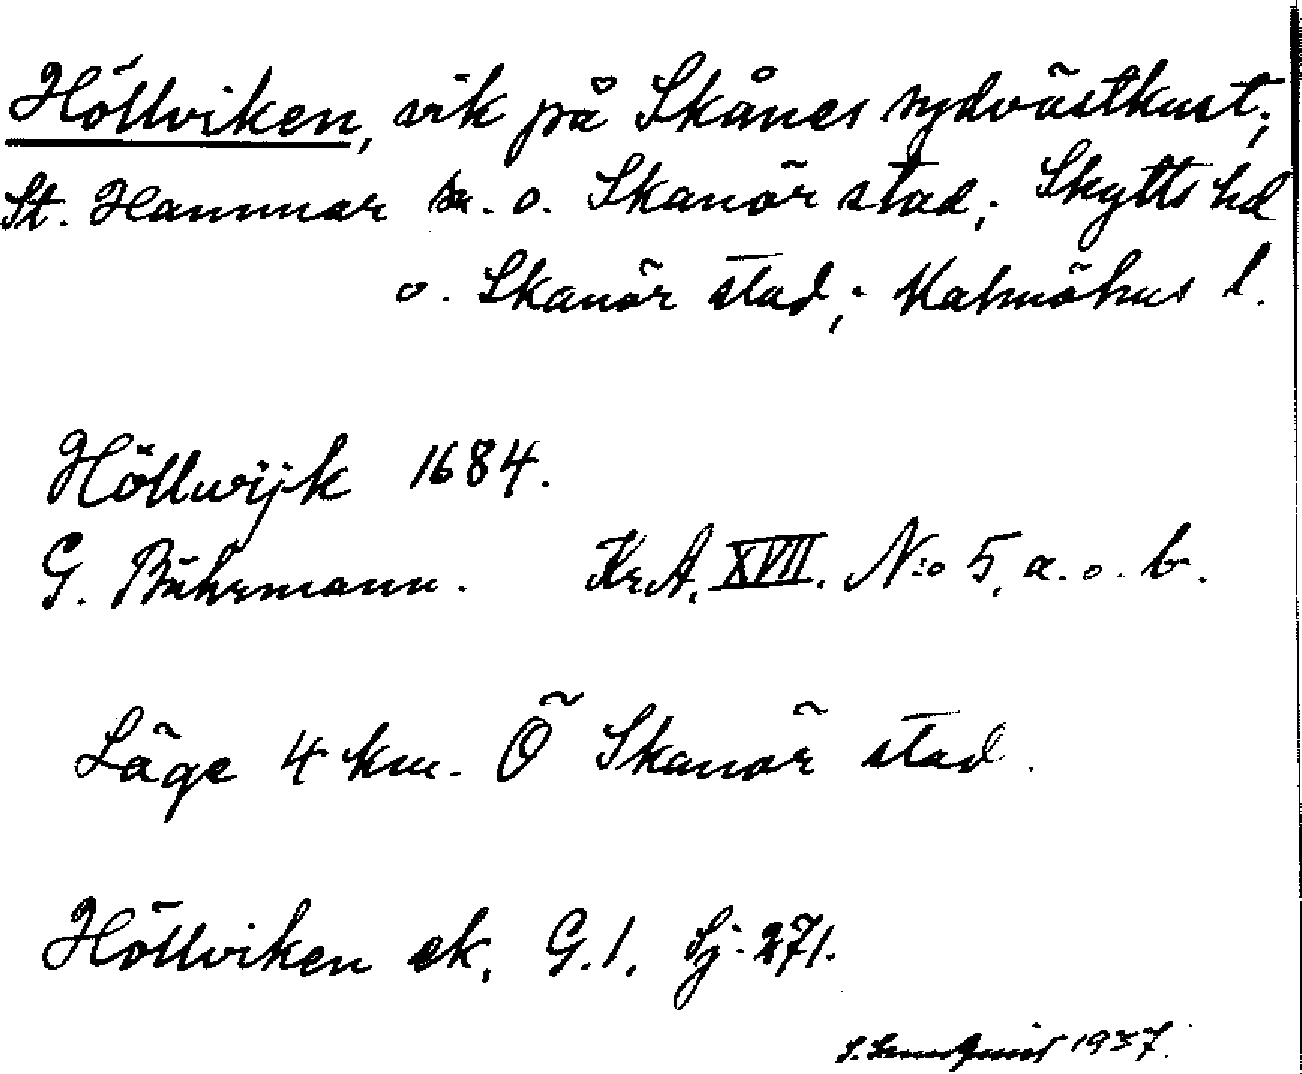 Höllviken, vik på Skånes sydvästkust;
St. Hammar sn. o. Skanör stad; Skytts hd
o. Skanör stad; Malmöhus l.
Höllwijk 1684.
G. Buhrmann. KrA. XVII. N:o 5. a. o. b.
Läge 4 km. Ö Skanör stad.
Höllviken ek. G.1. Sj: 271.
1937.